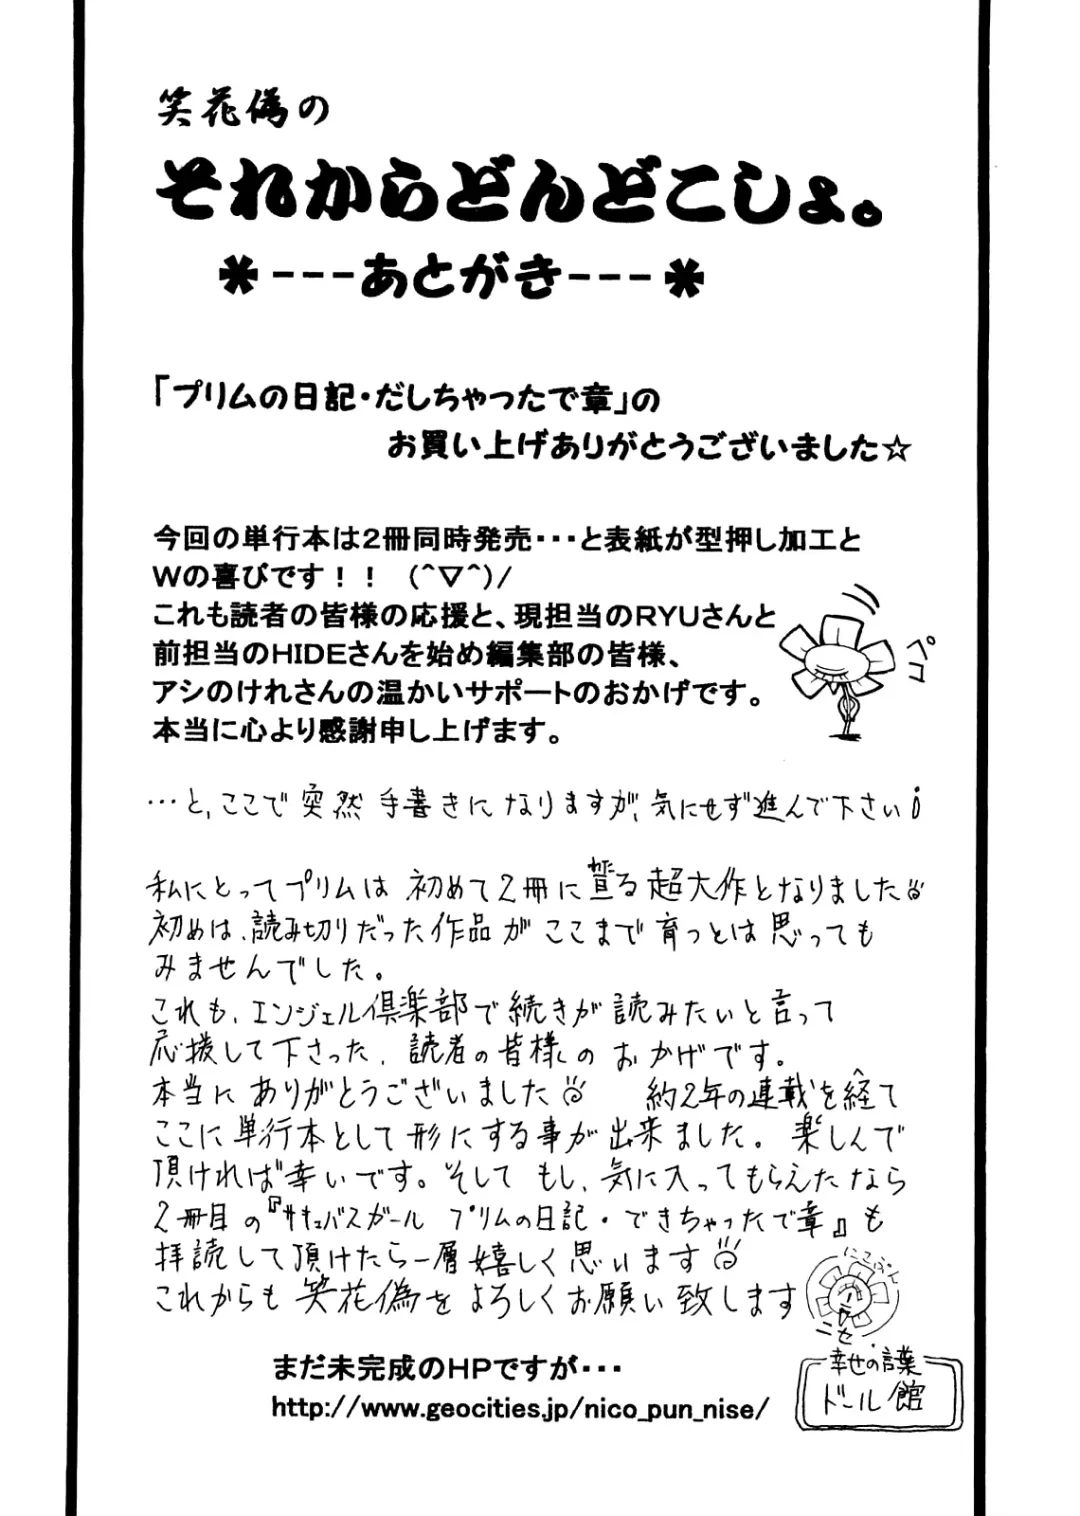 笑花偽の
それからどんどこしょ。
*---あとがき---*
「プリムの日記・だしちゃったで章」の
お買い上げありがとうございました☆
今回の単行本は2冊同時発売・・・と表紙が型押し加工と
Wの喜びです！！ (^▽^)/
これも読者の皆様の応援と、現担当のRYUさんと
前担当のHIDEさんを始め編集部の皆様、
アシのけれさんの温かいサポートのおかげです。
本当に心より感謝申し上げます。
ペコ
…と、ここで突然手書きになりますが、気にせず進んで下さい
私にとってプリムは初めて2冊に亘る超大作となりました
初めは、読み切りだった作品がここまで育つとは思っても
みませんでした。
これも、エンジェル倶楽部で続きが読みたいと言って
応援して下さった、読者の皆様のおかげです。
本当にありがとうございました 約2年の連載を経て
ここに単行本として形にする事が出来ました。楽しんで
頂ければ幸いです。そしてもし、気に入ってもらえたなら
2冊目の『サキュバスガール プリムの日記・できちゃったで章』も
拝読して頂けたら一層嬉しく思います
これからも笑花偽をよろしくお願い致します
にこぷんニセ.
まだ未完成のHPですが・・・
http://www.geocities.jp/nico_pun_nise/
幸せの言葉
ドール館